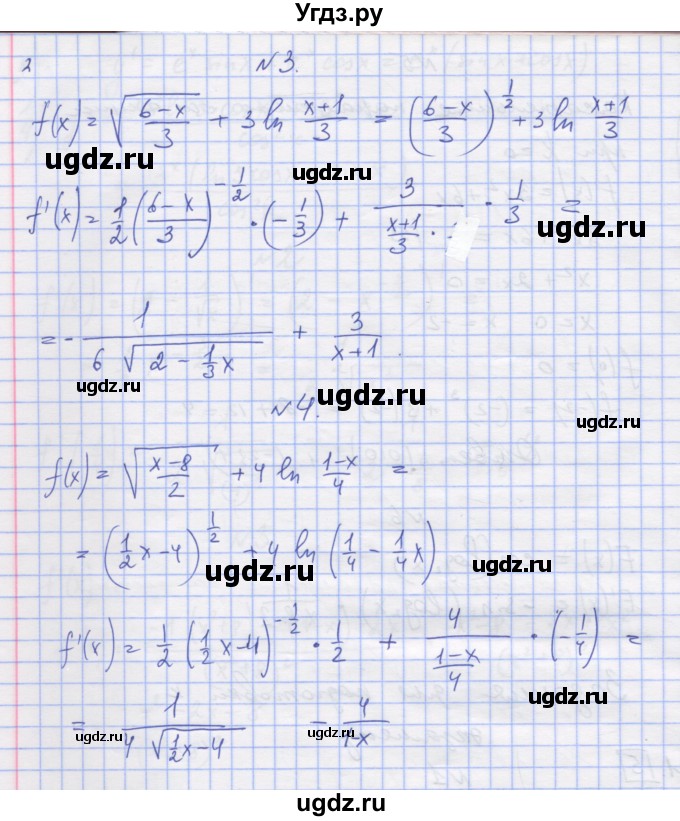 Угдз.ру
2
N 3.
f(x) = √((6-x)/3) + 3 ln (x+1)/3 = ((6-x)/3)^(1/2) + 3 ln (x+1)/3
ugdz.ru
ugdz.ru
ugdz.ru
f'(x) = 1/2 ((6-x)/3)^(-1/2) · (-1/3) + 3/((x+1)/3) · 1/3 =
ugdz.ru
= - 1/(6 √(2 - 1/3 x)) + 3/(x+1).
ugdz.ru
ugdz.ru
ugdz.ru
N 4.
f(x) = √((x-8)/2) + 4 ln (1-x)/4 =
= (1/2 x - 4)^(1/2) + 4 ln (1/4 - 1/4 x)
ugdz.ru
ugdz.ru
f'(x) = 1/2 (1/2 x - 4)^(-1/2) · 1/2 + 4/((1-x)/4) · (-1/4) =
ugdz.ru
= 1/(4 √(1/2 x - 4)) - 4/(1-x)
ugdz.ru
ugdz.ru
ugdz.ru
ugdz.ru